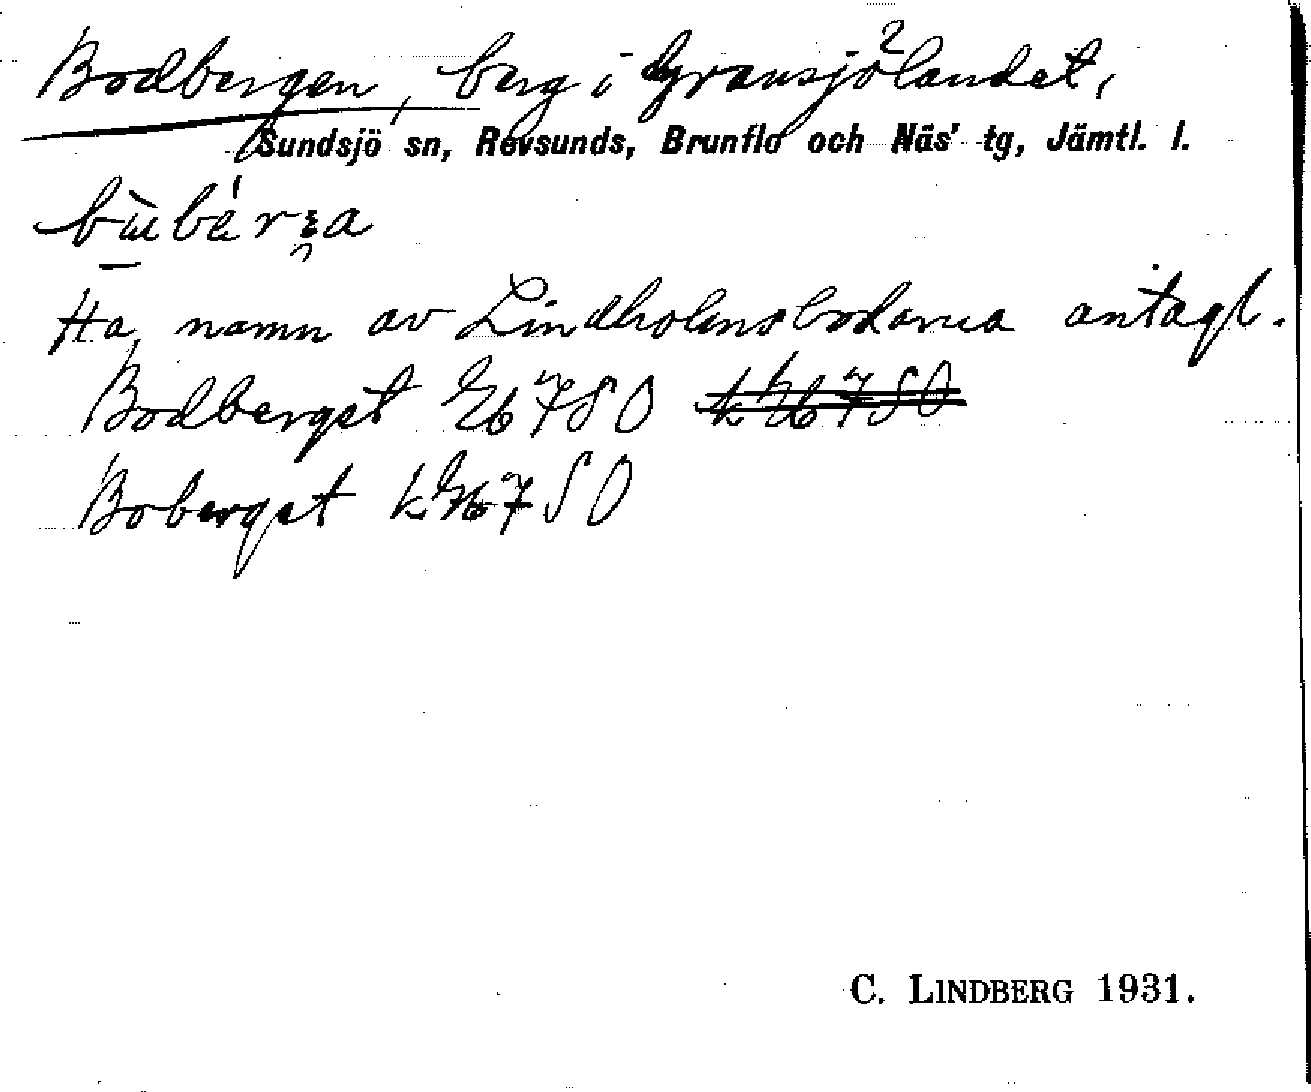 Bodbergen, berg i Gransjölandet,
Sundsjö sn, Revsunds, Brunflo och Näs' tg, Jämtl. l.
Ha namn av Lindholmsbodarna antagl.
Bodberget Eb 78 O
Boberget
C. LINDBERG 1931.